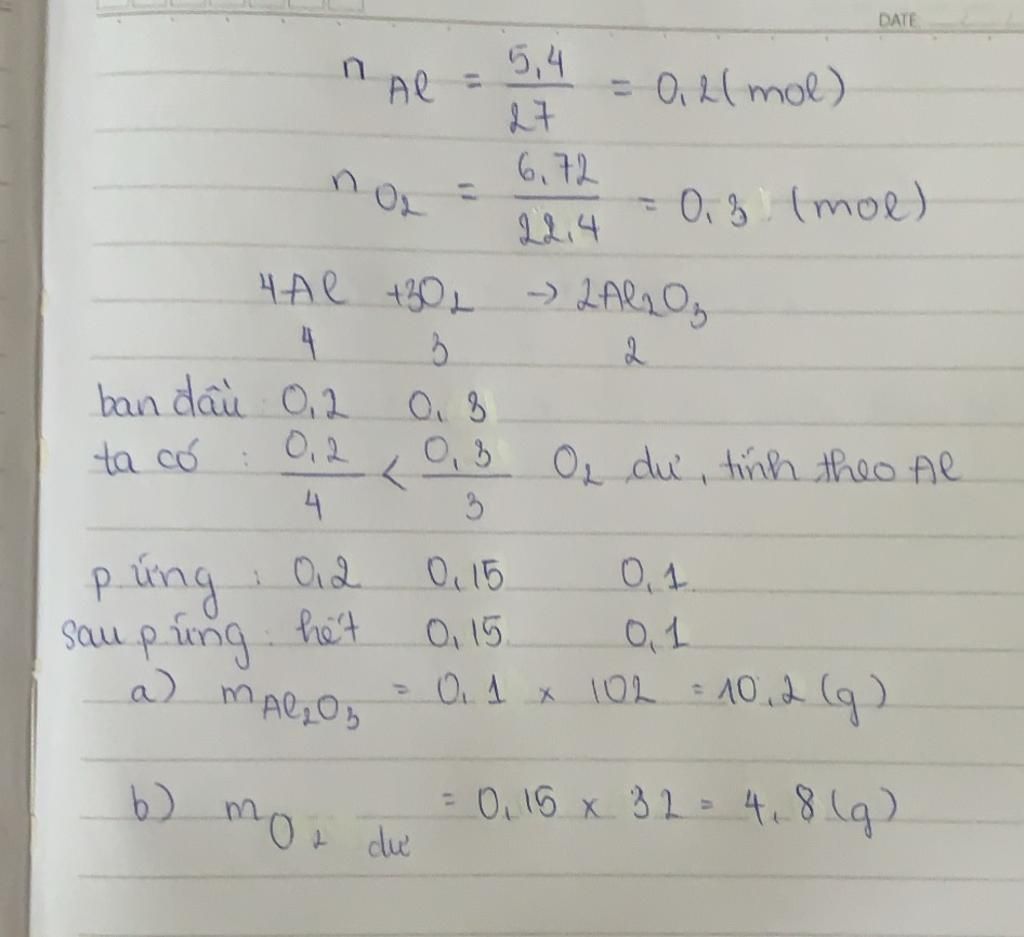 DATE
n Al = 5,4 / 27 = 0,2 (mol)
n O2 = 6,72 / 22,4 = 0,3 (mol)
4Al +3O2 → 2Al2O3
4 3 2
ban đầu 0,2 0,3
ta có : 0,2 / 4 < 0,3 / 3 O2 dư, tính theo Al
p ứng : 0,2 0,15 0,1
sau p ứng : hết 0,15 0,1
a) m Al2O3 = 0,1 × 102 = 10,2 (g)
b) m O2 dư = 0,15 × 32 = 4,8 (g)